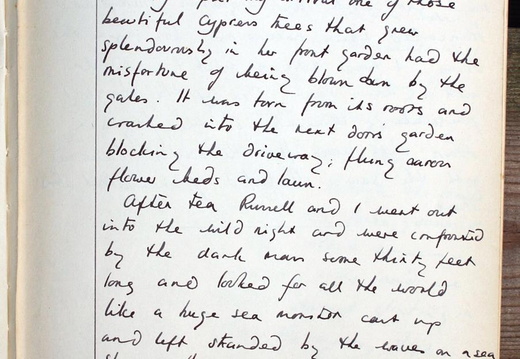 my arrival one of those
beautiful cypress trees that grew
splendourously in her front garden had the
misfortune of being blown down by the
gales. It was torn from its roots and
crashed into the next doors garden
blocking the driveway; flung across
flower beds and lawn.
After tea Russell and I went out
into the wild night and were confronted
by the dark mass some thirty feet
long and looked for all the world
like a huge sea monster cast up
and left stranded by the waves on a sea